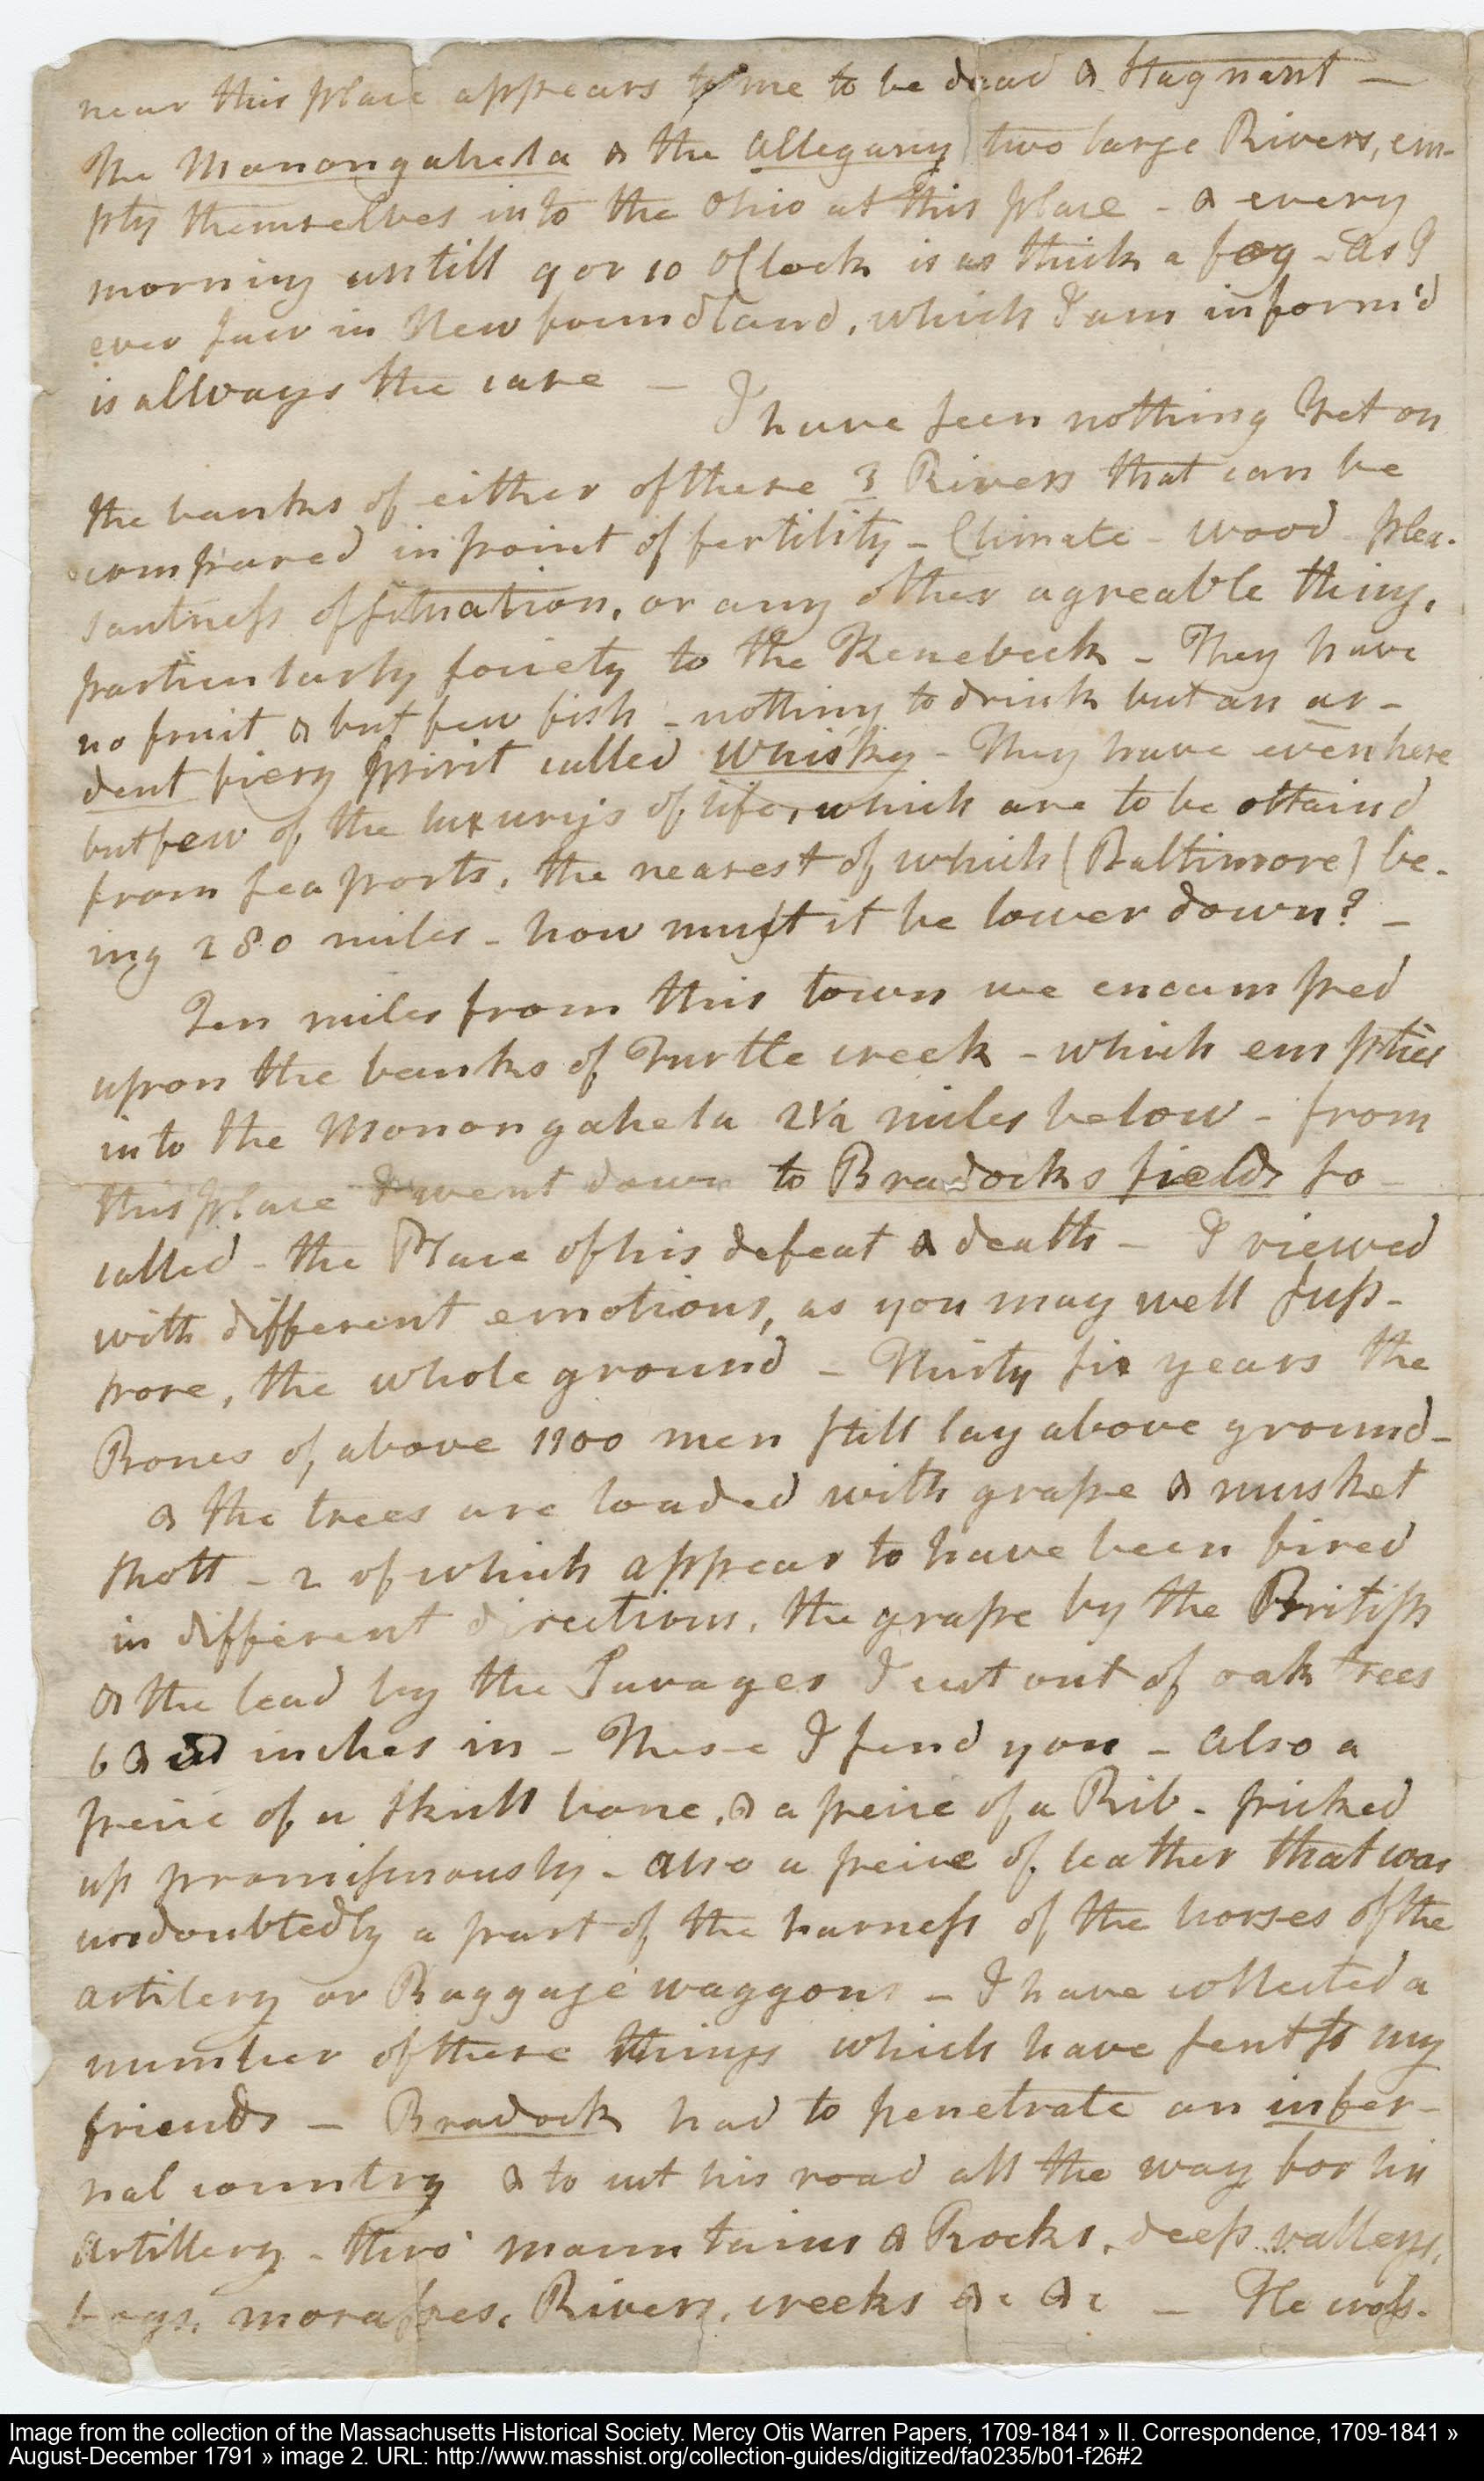 near this place appears to me to be dead & stagnant —
the Monongahela & the Allegany two large Rivers, em-
pty themselves into the Ohio at this place - & every
morning untill 9 or 10 oClock is as thick a fog - as I
ever saw in Newfoundland, which I am inform'd
is allways the case —
I have seen nothing yet on
the banks of either of these 3 Rivers that can be
compared in point of fertility - Climate - wood - plea-
santness of situation, or any other agreable thing,
particularly society to the Kenebeck - They have
no fruit & but few fish - nothing to drink but an ar-
dent fiery spirit called Whisky - They have even here
but few of the luxurys of life, which are to be obtaind
from sea ports, the nearest of which (Baltimore) be-
ing 280 miles - how must it be lower down? -
Ten miles from this town we encamped
upon the banks of Turtle creek - which empties
into the Monongahela 2½ miles below - from
this place I went down to Bradocks fields so
called - the Place of his defeat & death - I viewed
with different emotions, as you may well sup-
pose, the whole ground - Thirty six years the
Bones of above 1100 men still lay above ground -
& the trees are loaded with grape & musket
shott - 2 of which appear to have been fired
in different directions, the grape by the British
& the lead by the Savages I cut out of oak trees
6 & inches in - These I send you - also a
peice of a skull bone, & a peice of a Rib - picked
up promiscuously - also a peice of leather that was
undoubtedly a part of the harness of the horses of the
artilery or Baggage waggons - I have collected a
number of these things which have sent to my
friends — Bradock had to penetrate an infer-
nal country & to cut his road all the way for his
Artillery - thro' mountains & Rocks, deep valleys,
bogs, morasses, Rivers, creeks &c &c — He
Image from the collection of the Massachusetts Historical Society. Mercy Otis Warren Papers, 1709-1841 » II. Correspondence, 1709-1841 »
August-December 1791 » image 2. URL: http://www.masshist.org/collection-guides/digitized/fa0235/b01-f26#2